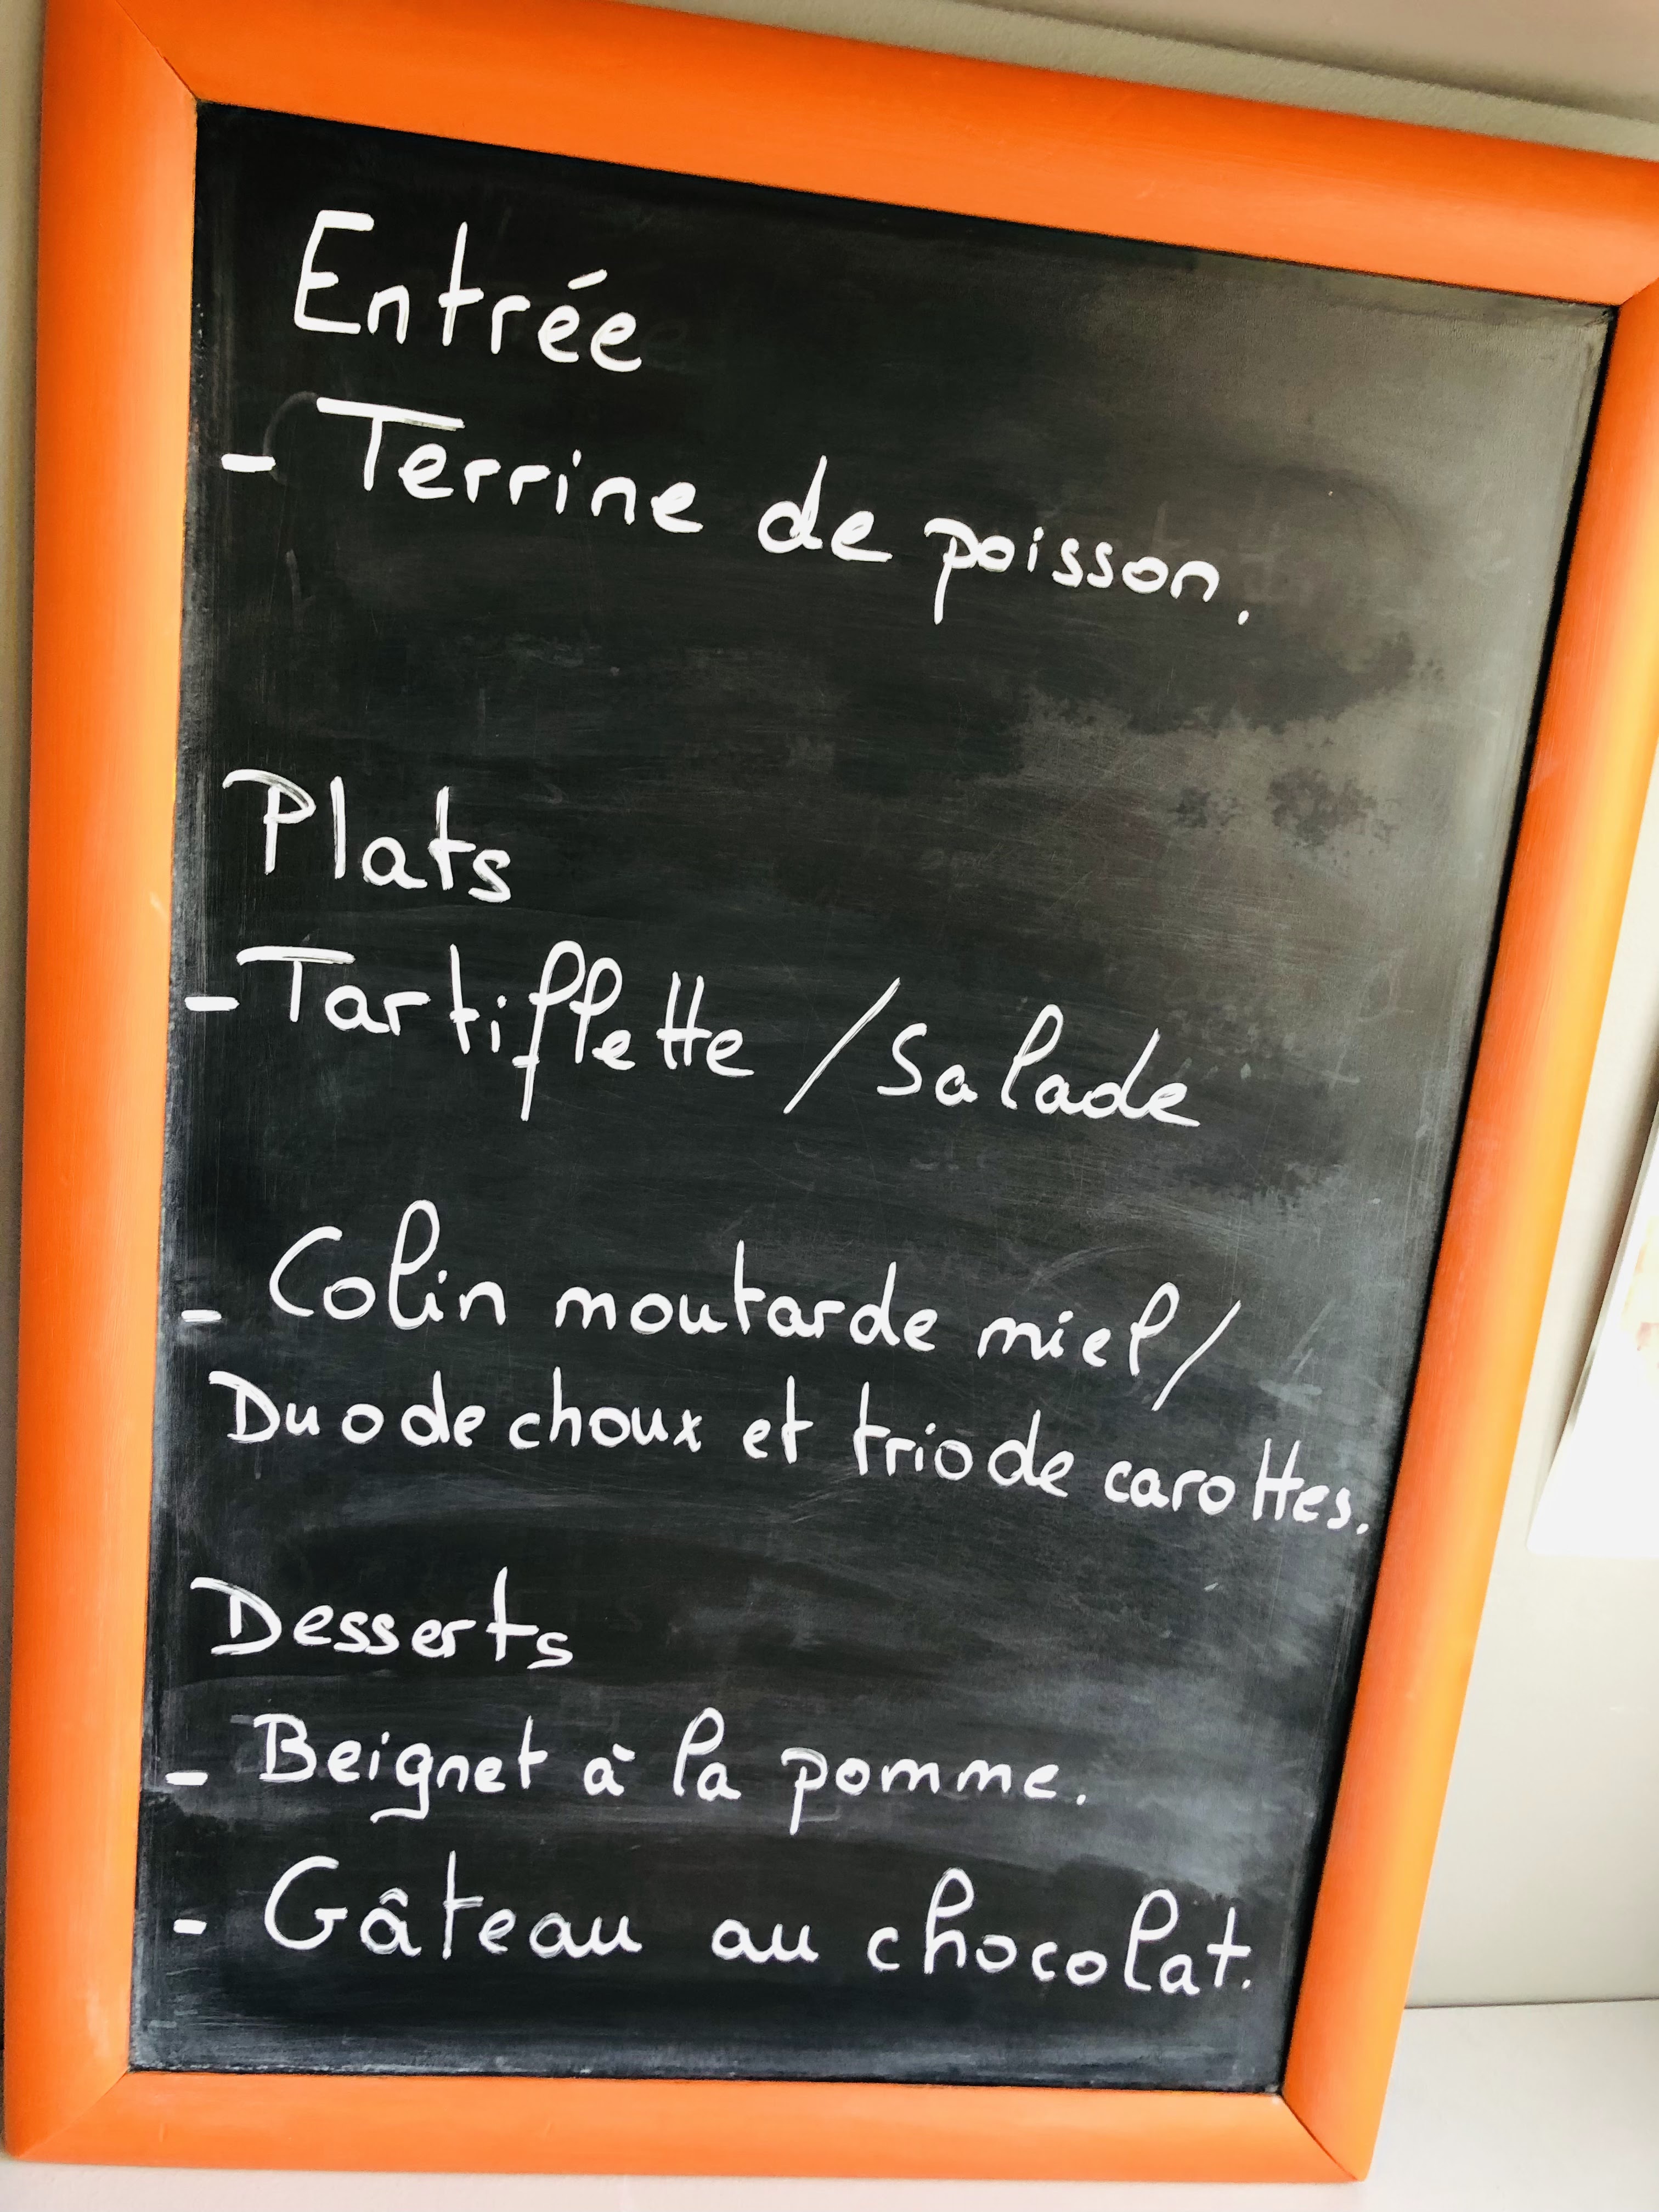 Entrée
- Terrine de poisson.
Plats
- Tartiflette / Salade
- Colin moutarde miel /
Duo de choux et trio de carottes.
Desserts
- Beignet à la pomme.
- Gâteau au chocolat.